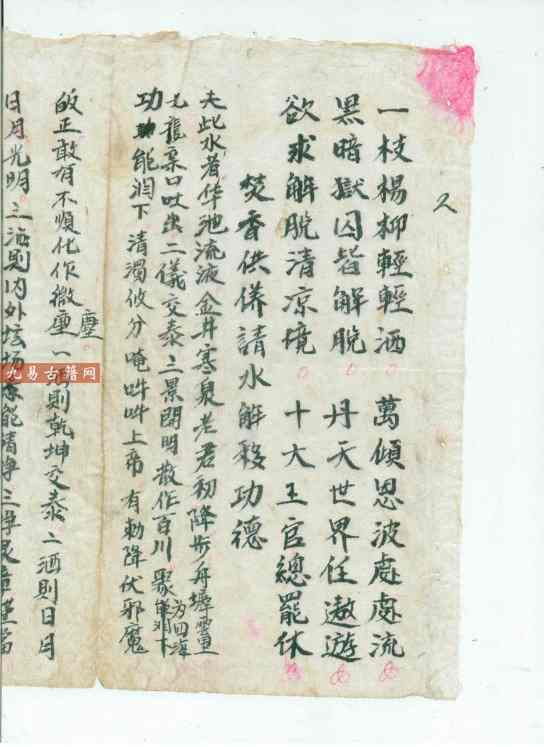 又
一枝楊柳輕輕洒 萬傾恩波處處流
黑暗獄囚皆解脫 丹天世界任遨遊
欲求解脫清凉境 十大王官總罷休
焚香供養請水解穢功德
夫此水者华池流液金井寒泉老君初降步丹墀靈
九龍吞口吐出二儀交泰三景開明散作百川聚為四海
功能润下清濁攸分唵吽吽上帝有勅降伏邪魔
皈正敢有不順化作微塵一洒則乾坤交泰二洒則日月
塵
日月光明三洒則内外坛场能清净三净
九易古籍网